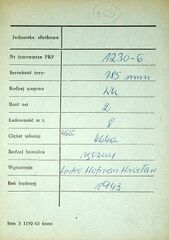 Jednostka służbowa
Nr inwentarza PKP 1230-6
Szerokość toru 785 mm
Rodzaj wagonu Wk
Ilość osi 2
Ładowność w t. 8
Ciężar własny 4620 4640
Rodzaj hamulca ręczny
Wytwórnia Linke Hofman Wrocław
Rok budowy 1943